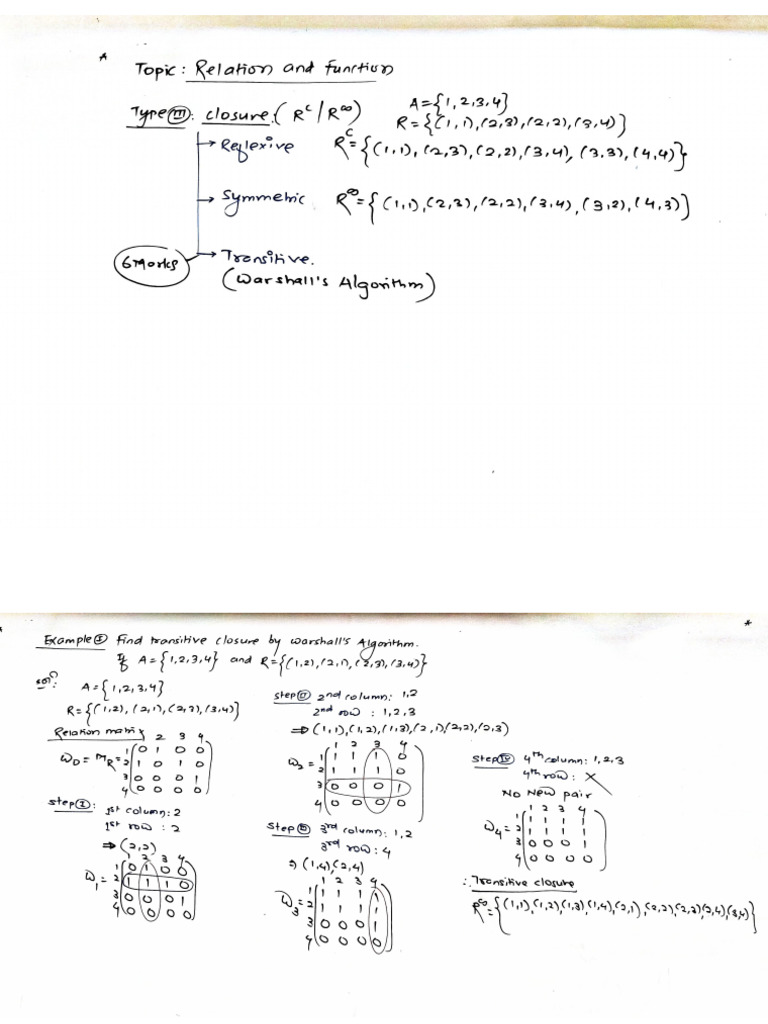 *
Topic: Relation and function
Type (III): closure. (R^c/R^∞)
A={1,2,3,4}
R={(1,1),(2,3),(2,2),(3,4)}
→ Reflexive R^c={(1,1),(2,3),(2,2),(3,4),(3,3),(4,4)}
→ Symmetric R^∞={(1,1),(2,3),(2,2),(3,4),(3,2),(4,3)}
6 Marks → Transitive.
(Warshall's Algorithm)
* *
Example (I) Find transitive closure by Warshall's Algorithm.
If A={1,2,3,4} and R={(1,2),(2,1),(2,3),(3,4)}
A={1,2,3,4}
R={(1,2),(2,1),(2,3),(3,4)}
Relation matrix
2 3 4
W0 = MR =
1 0 1 0 0
2 1 0 1 0
3 0 0 0 1
4 0 0 0 0
Step (I):
1st column: 2
1st row : 2
⇒ (2,2)
1 2 3 4
W1 =
1 0 1 0 0
2 1 1 1 0
3 0 0 0 1
4 0 0 0 0
Step (II) 2nd column: 1,2
2nd row : 1,2,3
⇒ (1,1),(1,2),(1,3),(2,1),(2,2),(2,3)
1 2 3 4
W2 =
1 1 1 1 0
2 1 1 1 0
3 0 0 0 1
4 0 0 0 0
Step 3rd column: 1,2
3rd row: 4
⇒ (1,4),(2,4)
1 2 3 4
W3 =
1 1 1 1 1
2 1 1 1 1
3 0 0 0 1
4 0 0 0 0
Step (IV) 4th column: 1,2,3
4th row: X
No New pair
1 2 3 4
W4 =
1 1 1 1 1
2 1 1 1 1
3 0 0 0 1
4 0 0 0 0
∴ Transitive closure
R^∞={(1,1),(1,2),(1,3),(1,4),(2,1),(2,2),(2,3),(2,4),(3,4)}